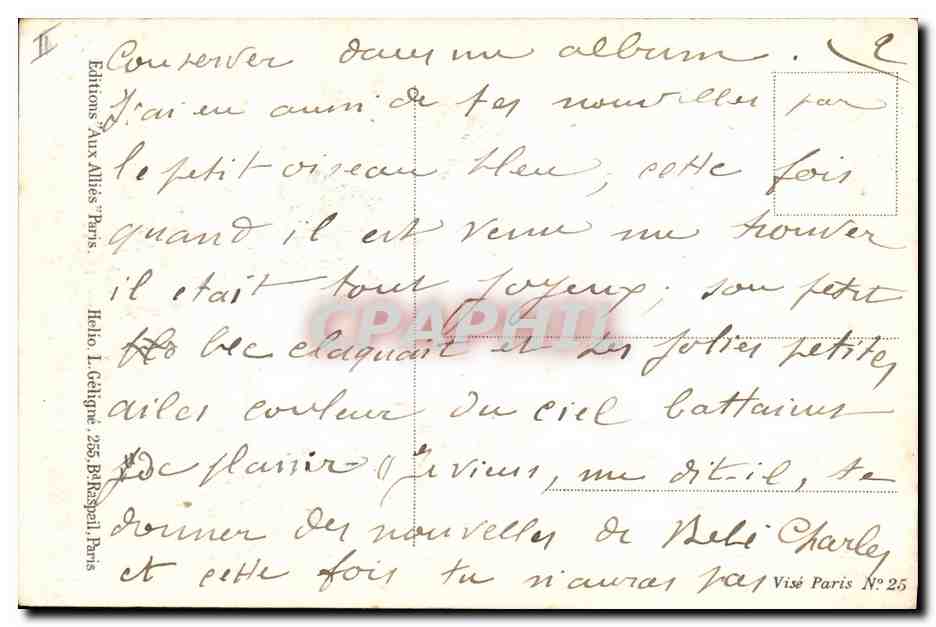 II
2
Conserver dans un album.
J'ai eu aussi de tes nouvelles par
le petit oiseau bleu, cette fois
quand il est venu me trouver
il était tout joyeux, son petit
bec claquait et ses jolies petites
ailes couleur du ciel battaient
de plaisir "Je viens, me dit-il, te
donner des nouvelles de Bébé Charles
et cette fois tu n'auras pas
Editions "Aux Alliés" Paris. Helio. L. Géligné, 255, Bd Raspail, Paris
Visé Paris No. 25
CPAPHIL